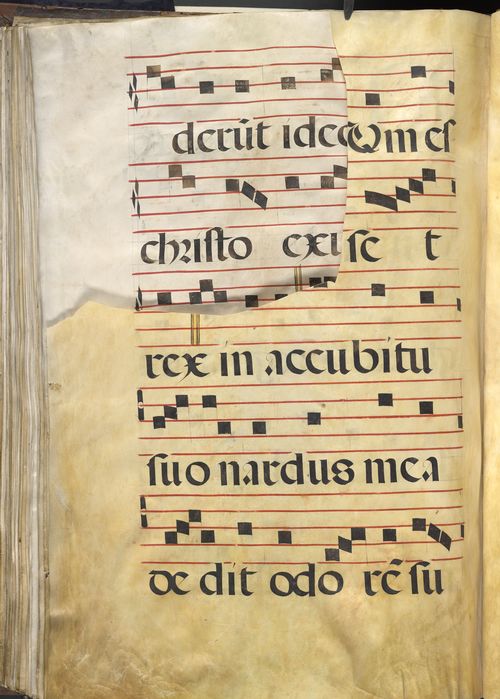 derūt ideo Dum eſ
chriſto exi ſe t
rex in accubitu
ſuo nardus mea
de dit odo rē ſu